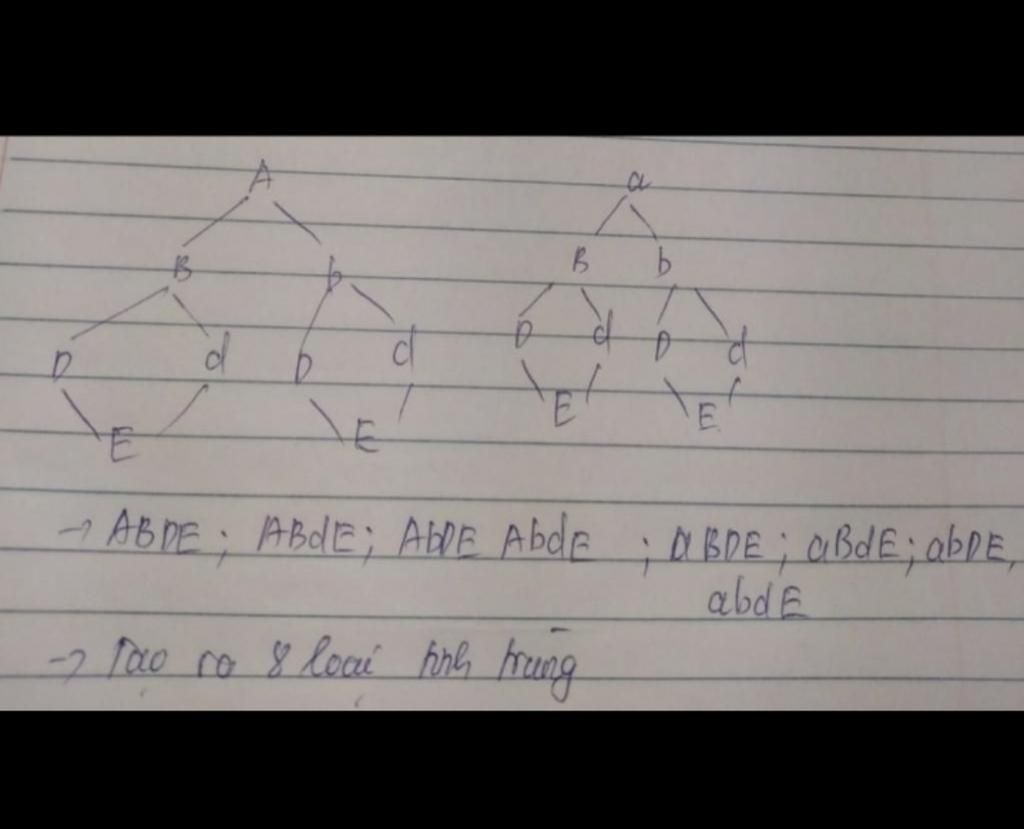 A a
B b B b
D d D d D d D d
E E E E
→ ABDE ; ABdE ; AbDE AbdE ; aBDE ; aBdE ; abDE,
abdE
→ Tạo ra 8 loại tinh trùng